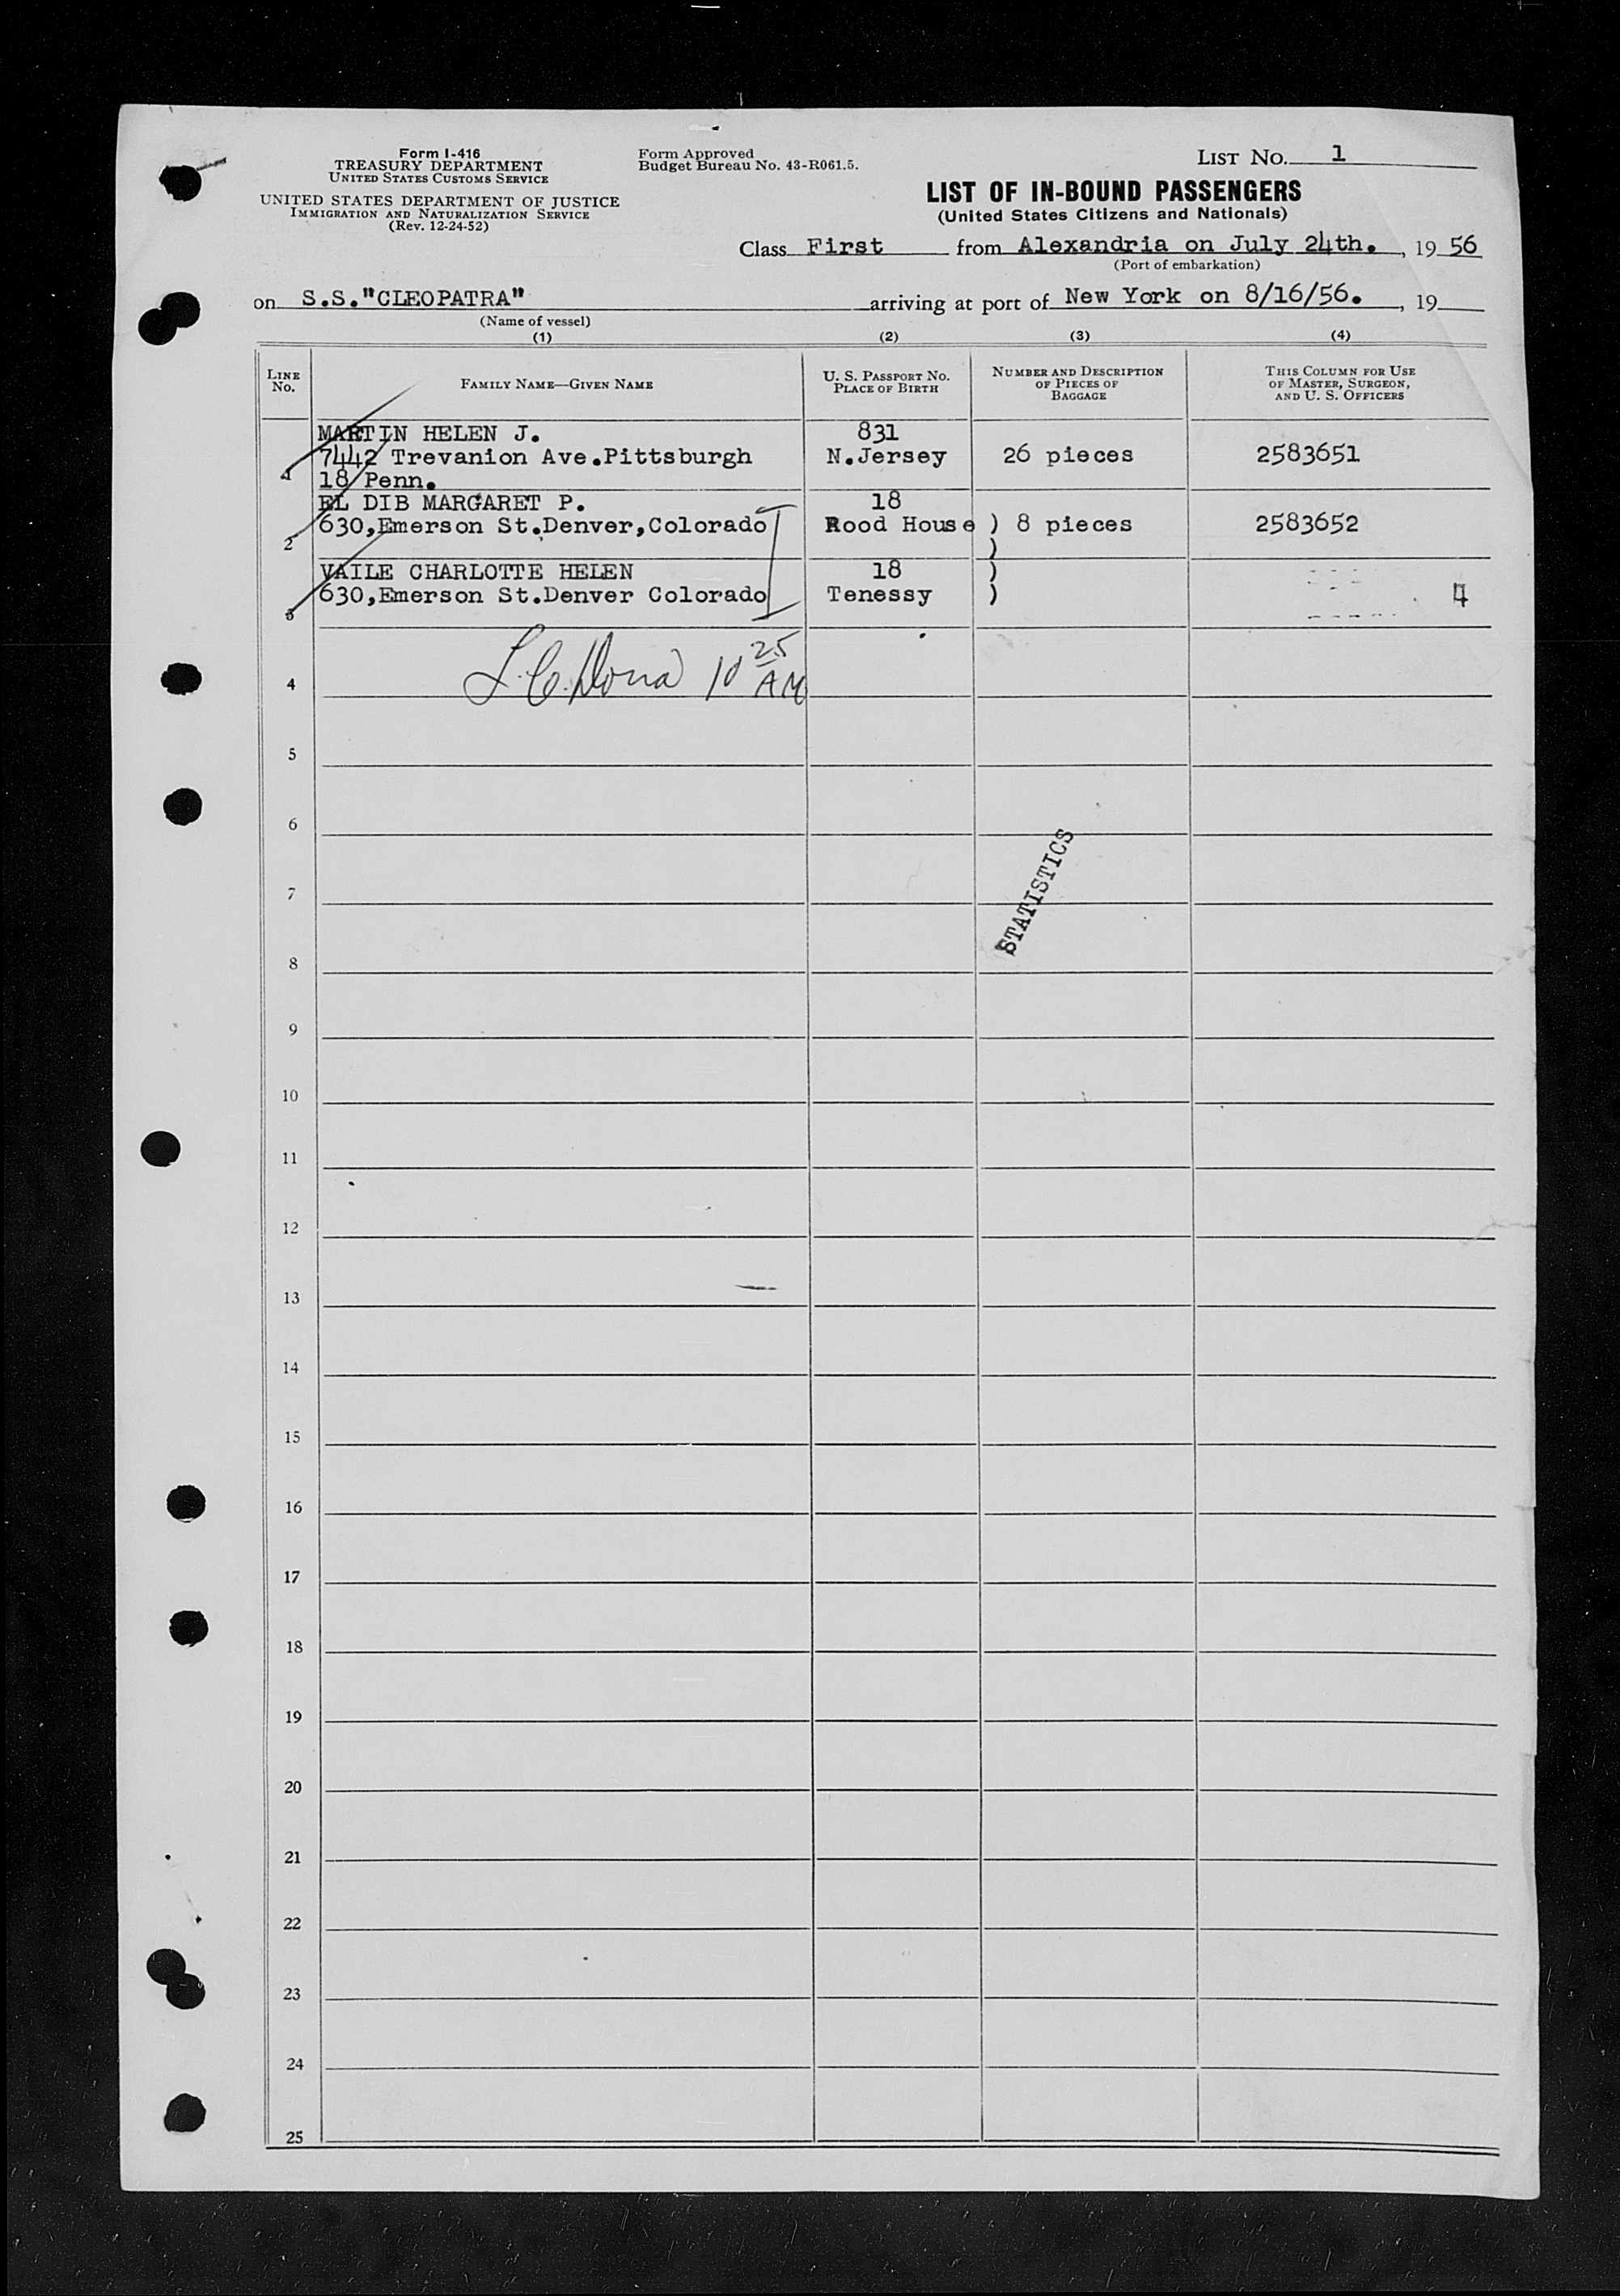 Form I-416
TREASURY DEPARTMENT
UNITED STATES CUSTOMS SERVICE
UNITED STATES DEPARTMENT OF JUSTICE
IMMIGRATION AND NATURALIZATION SERVICE
(Rev. 12-24-52)
Form Approved
Budget Bureau No. 43-R061.5.
LIST NO. 1
LIST OF IN-BOUND PASSENGERS
(United States Citizens and Nationals)
Class First from Alexandria on July 24th. , 19 56
(Port of embarkation)
on S.S."CLEOPATRA" arriving at port of New York on 8/16/56. , 19
(Name of vessel)
(1) (2) (3) (4)
LINE NO.
FAMILY NAME—GIVEN NAME
U. S. PASSPORT NO. PLACE OF BIRTH
NUMBER AND DESCRIPTION OF PIECES OF BAGGAGE
THIS COLUMN FOR USE OF MASTER, SURGEON, AND U. S. OFFICERS
MARTIN HELEN J. 831
7442 Trevanion Ave.Pittsburgh N.Jersey 26 pieces 2583651
1 18 Penn.
EL DIB MARGARET P. 18
630,Emerson St.Denver,Colorado Rood House ) 8 pieces 2583652
2 )
VAILE CHARLOTTE HELEN 18 )
630,Emerson St.Denver Colorado Tenessy ) 4
3
10 25 AM
4
5
6
7
STATISTICS
8
9
10
11
12
13
14
15
16
17
18
19
20
21
22
23
24
25